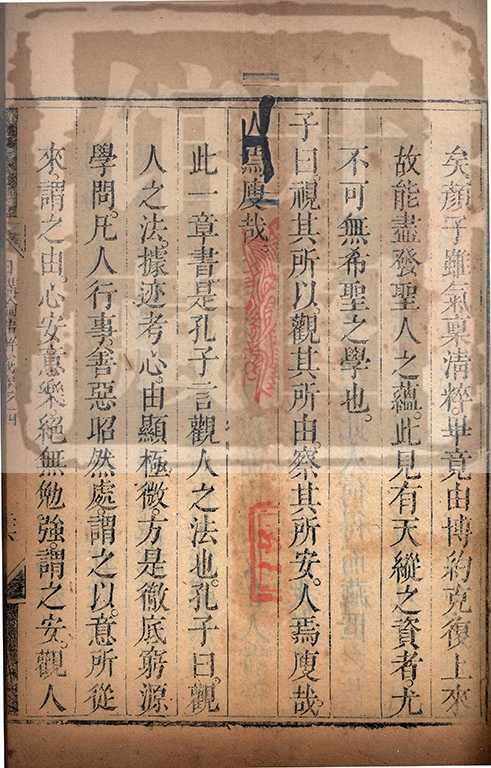 矣。顏子雖氣稟清粹。畢竟由博約克復上來
故能盡發聖人之蘊。此見有天縱之資者。尤
不可無希聖之學也。
子曰。視其所以。觀其所由。察其所安。人焉廋哉。
人焉廋哉。
此一章書是孔子言觀人之法也。孔子曰。觀
人之法。據迹考心。由顯極微。方是徹底窮源
學問。凡人行事。善惡昭然處。謂之以。意所從
來。謂之由。心安意樂。絕無勉強。謂之安。觀人
日講論語解義卷之四